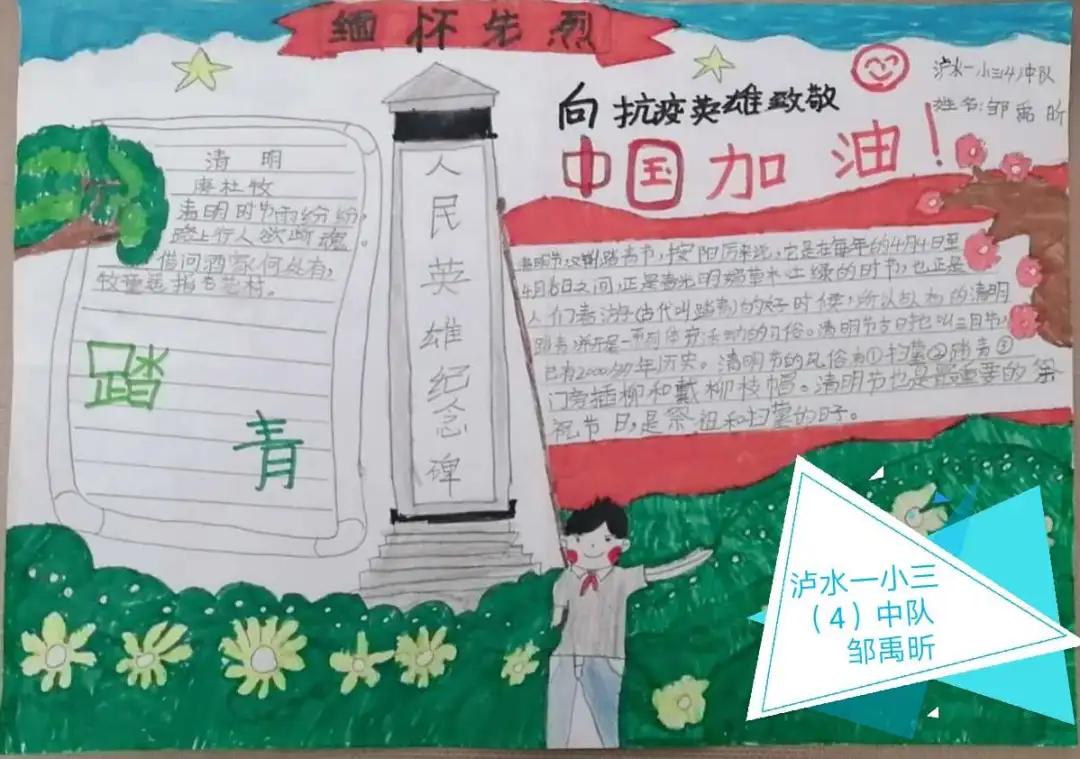 缅怀先烈
向抗疫英雄致敬
中国加油！
泸水一小三(4)中队
姓名:邹禹昕
清明
唐杜牧
清明时节雨纷纷,
路上行人欲断魂。
借问酒家何处有,
牧童遥指杏花村。
踏
青
人民英雄纪念碑
清明节,又叫踏青节,按阳历来说,它是在每年的4月4日至
4月6日之间,正是春光明媚草木吐绿的时节,也正是
人们春游(古代叫踏青)的好时候,所以古人有清明
踏青,并开展一系列体育活动的习俗。清明节古时也叫三月节,
已有2000多年历史。清明节的风俗有①扫墓②踏青③
门旁插柳和戴柳枝帽。清明节也是最重要的祭
祀节日,是祭祖和扫墓的日子。
泸水一小三
（4）中队
邹禹昕